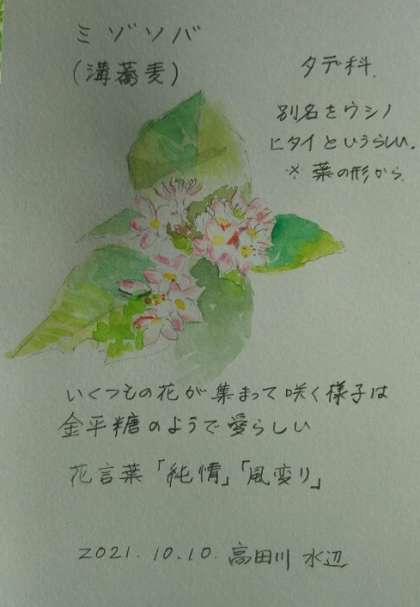 ミゾソバ
(溝蕎麦)
タデ科.
別名をウシノ
ヒタイというらしい.
※ 葉の形から.
いくつもの花が集まって咲く様子は
金平糖のようで愛らしい
花言葉「純情」「風変り」
2021.10.10. 高田川 水辺